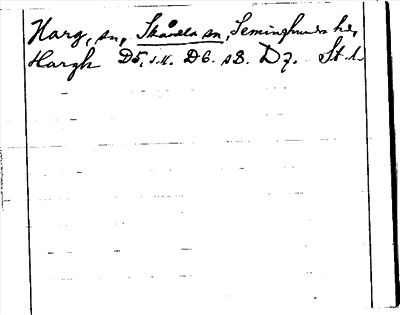 Harg, sn, Skånela sn, Seminghundra hd,
Hargh D5, s.K. D6. sB. D7. St. l.